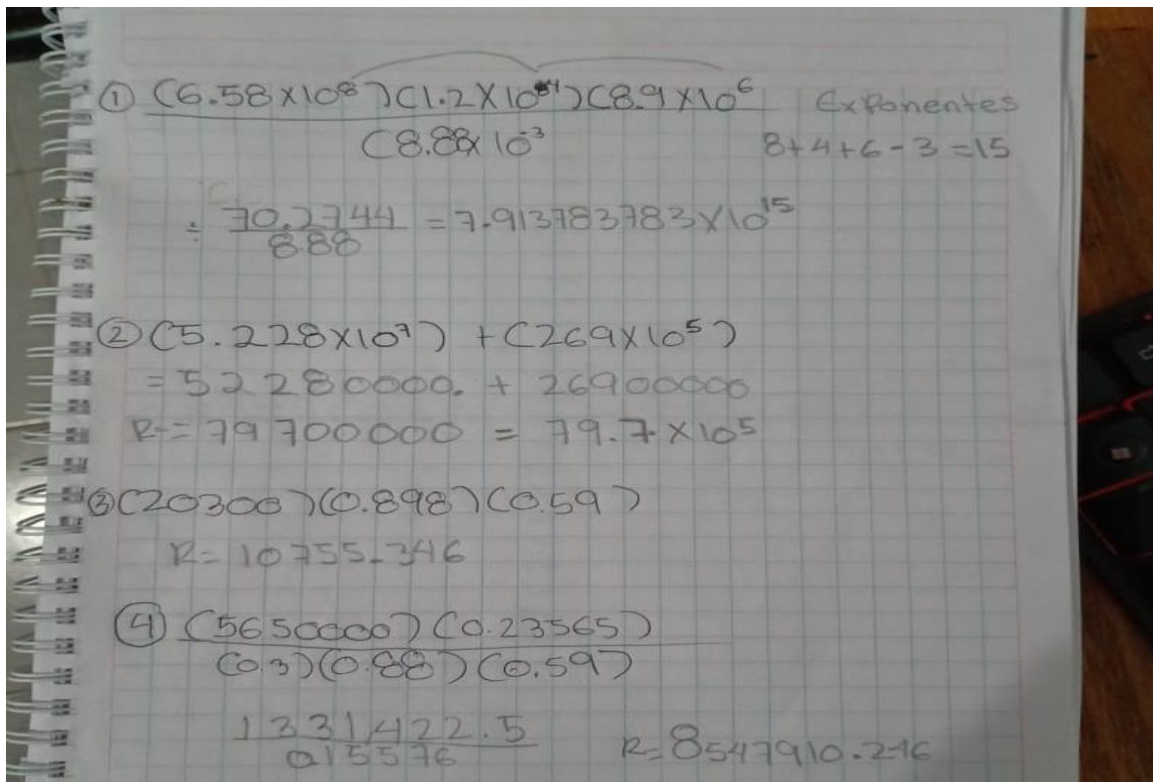 ① (6.58×10⁸)(1.2×10⁴)(8.9×10⁶ Exponentes
(8.88×10⁻³ 8+4+6-3=15
÷ 70.2744 = 7.913783783×10¹⁵
8.88
② (5.228×10⁷) + (269×10⁵)
= 52280000. + 26900000
R= 79700000 = 79.7×10⁵
③ (20300)(0.898)(0.59)
R= 10755.346
④ (5650000)(0.23565)
(0.3)(0.88)(0.59)
1331422.5 R= 8547910.216
0.15576